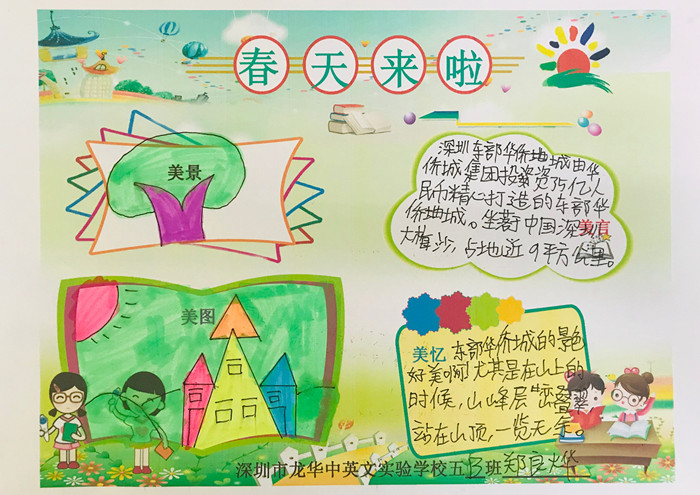 春天来啦
美景
深圳东部华侨城由华
侨城集团投资35亿人
民币精心打造的东部华
侨城。坐落中国深圳
美言
大梅沙,占地近9平方公里。
美图
美忆
东部华侨城的景色
好美啊尤其是在山上的
时候,山峰层峦叠翠
站在山顶,一览无余。
深圳市龙华中英文实验学校五 3 班 郑良烨